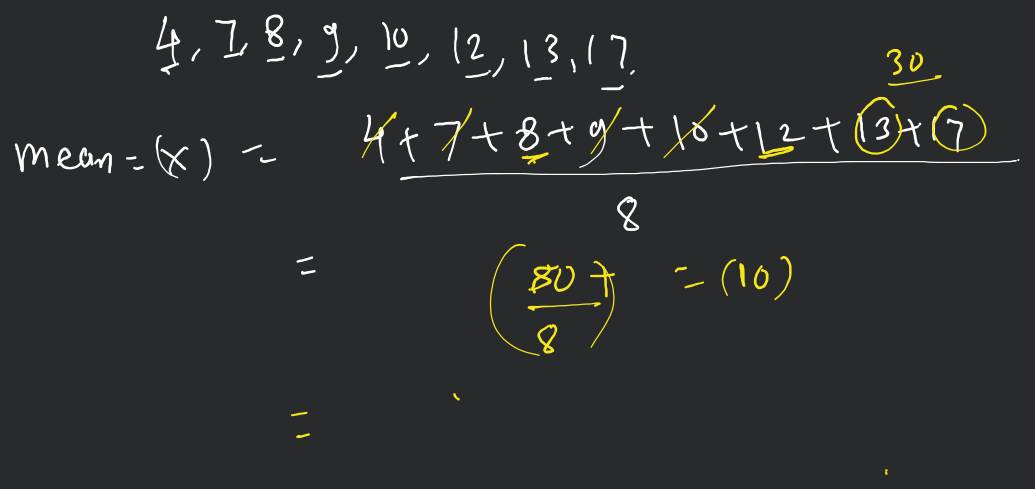 4, 7, 8, 9, 10, 12, 13, 17.
30
mean = (x) = 4 + 7 + 8 + 9 + 10 + 12 + 13 + 17
8
= (80 + = (10)
8)
=